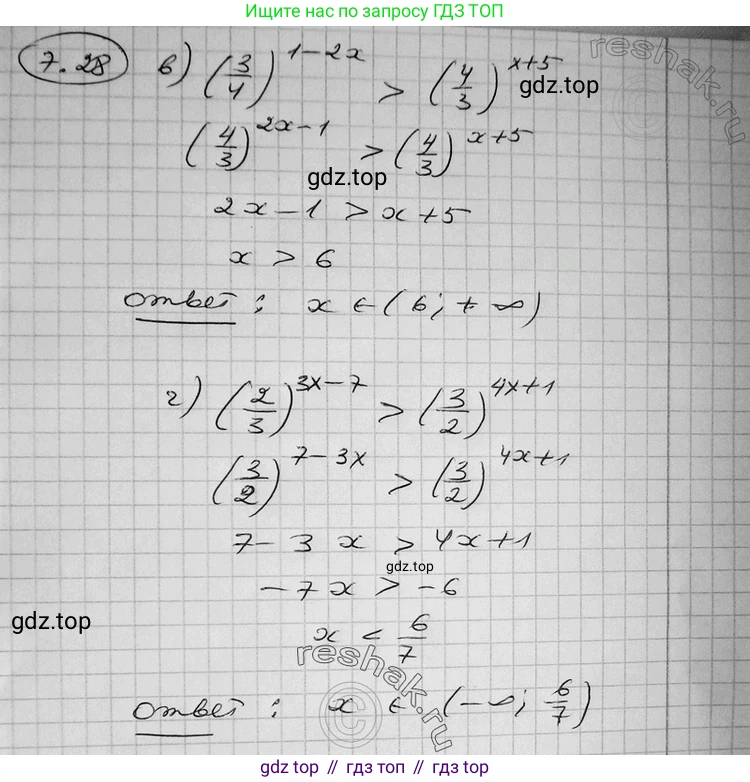 Ищите нас по запросу ГДЗ ТОП
7.28 в) (3/4)^(1-2x) > (4/3)^(x+5)
gdz.top
reshak.ru
(4/3)^(2x-1) > (4/3)^(x+5)
gdz.top
2x-1 > x+5
x > 6
ответ: x ∈ (6; +∞)
г) (2/3)^(3x-7) > (3/2)^(4x+1)
(3/2)^(7-3x) > (3/2)^(4x+1)
7-3x > 4x+1
gdz.top
-7x > -6
gdz.top
x < 6/7
reshak.ru
ответ: x ∈ (-∞; 6/7)
gdz.top // гдз.топ // gdz.top